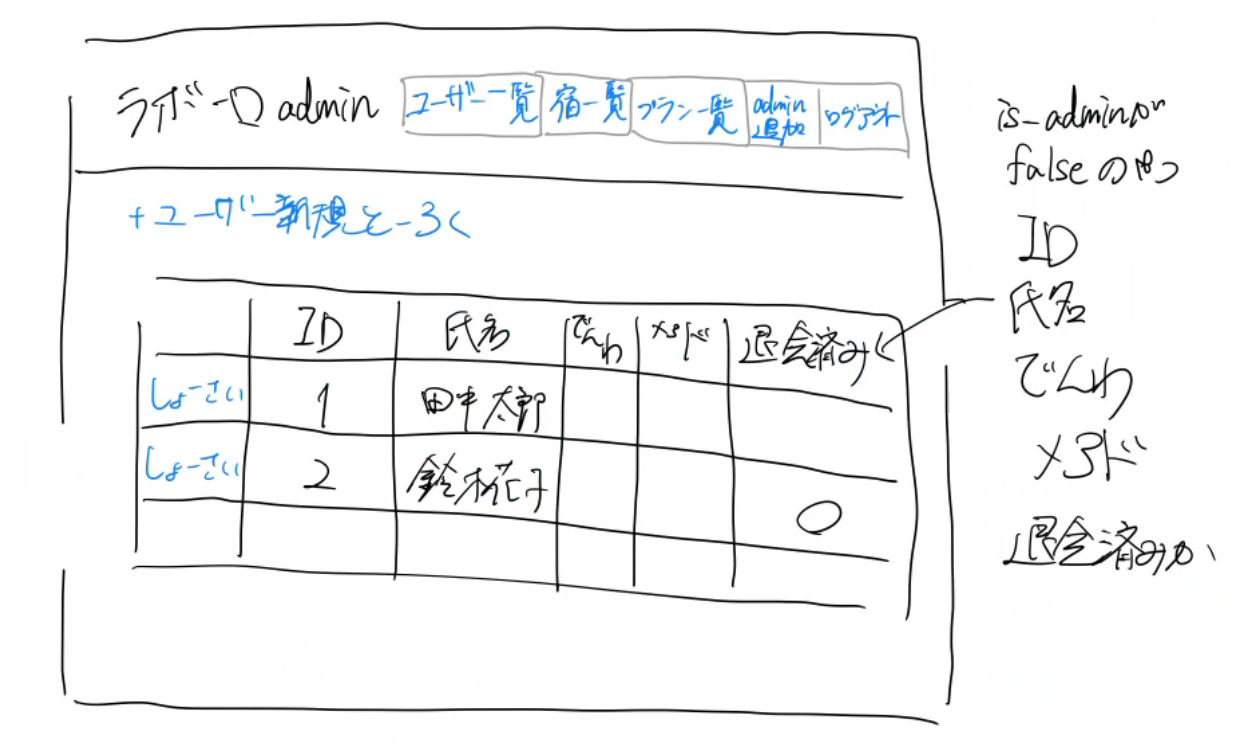 ライボーロ admin ユーザー一覧 宿一覧 プラン一覧 admin追加 ログアウト
+ユーザー新規とーろく
ID 氏名 でんわ メアド 退会済み
しょーさい 1 田中太郎
しょーさい 2 鈴木花子 ○
is_adminが
falseのやつ
ID
氏名
でんわ
メアド
退会済みか